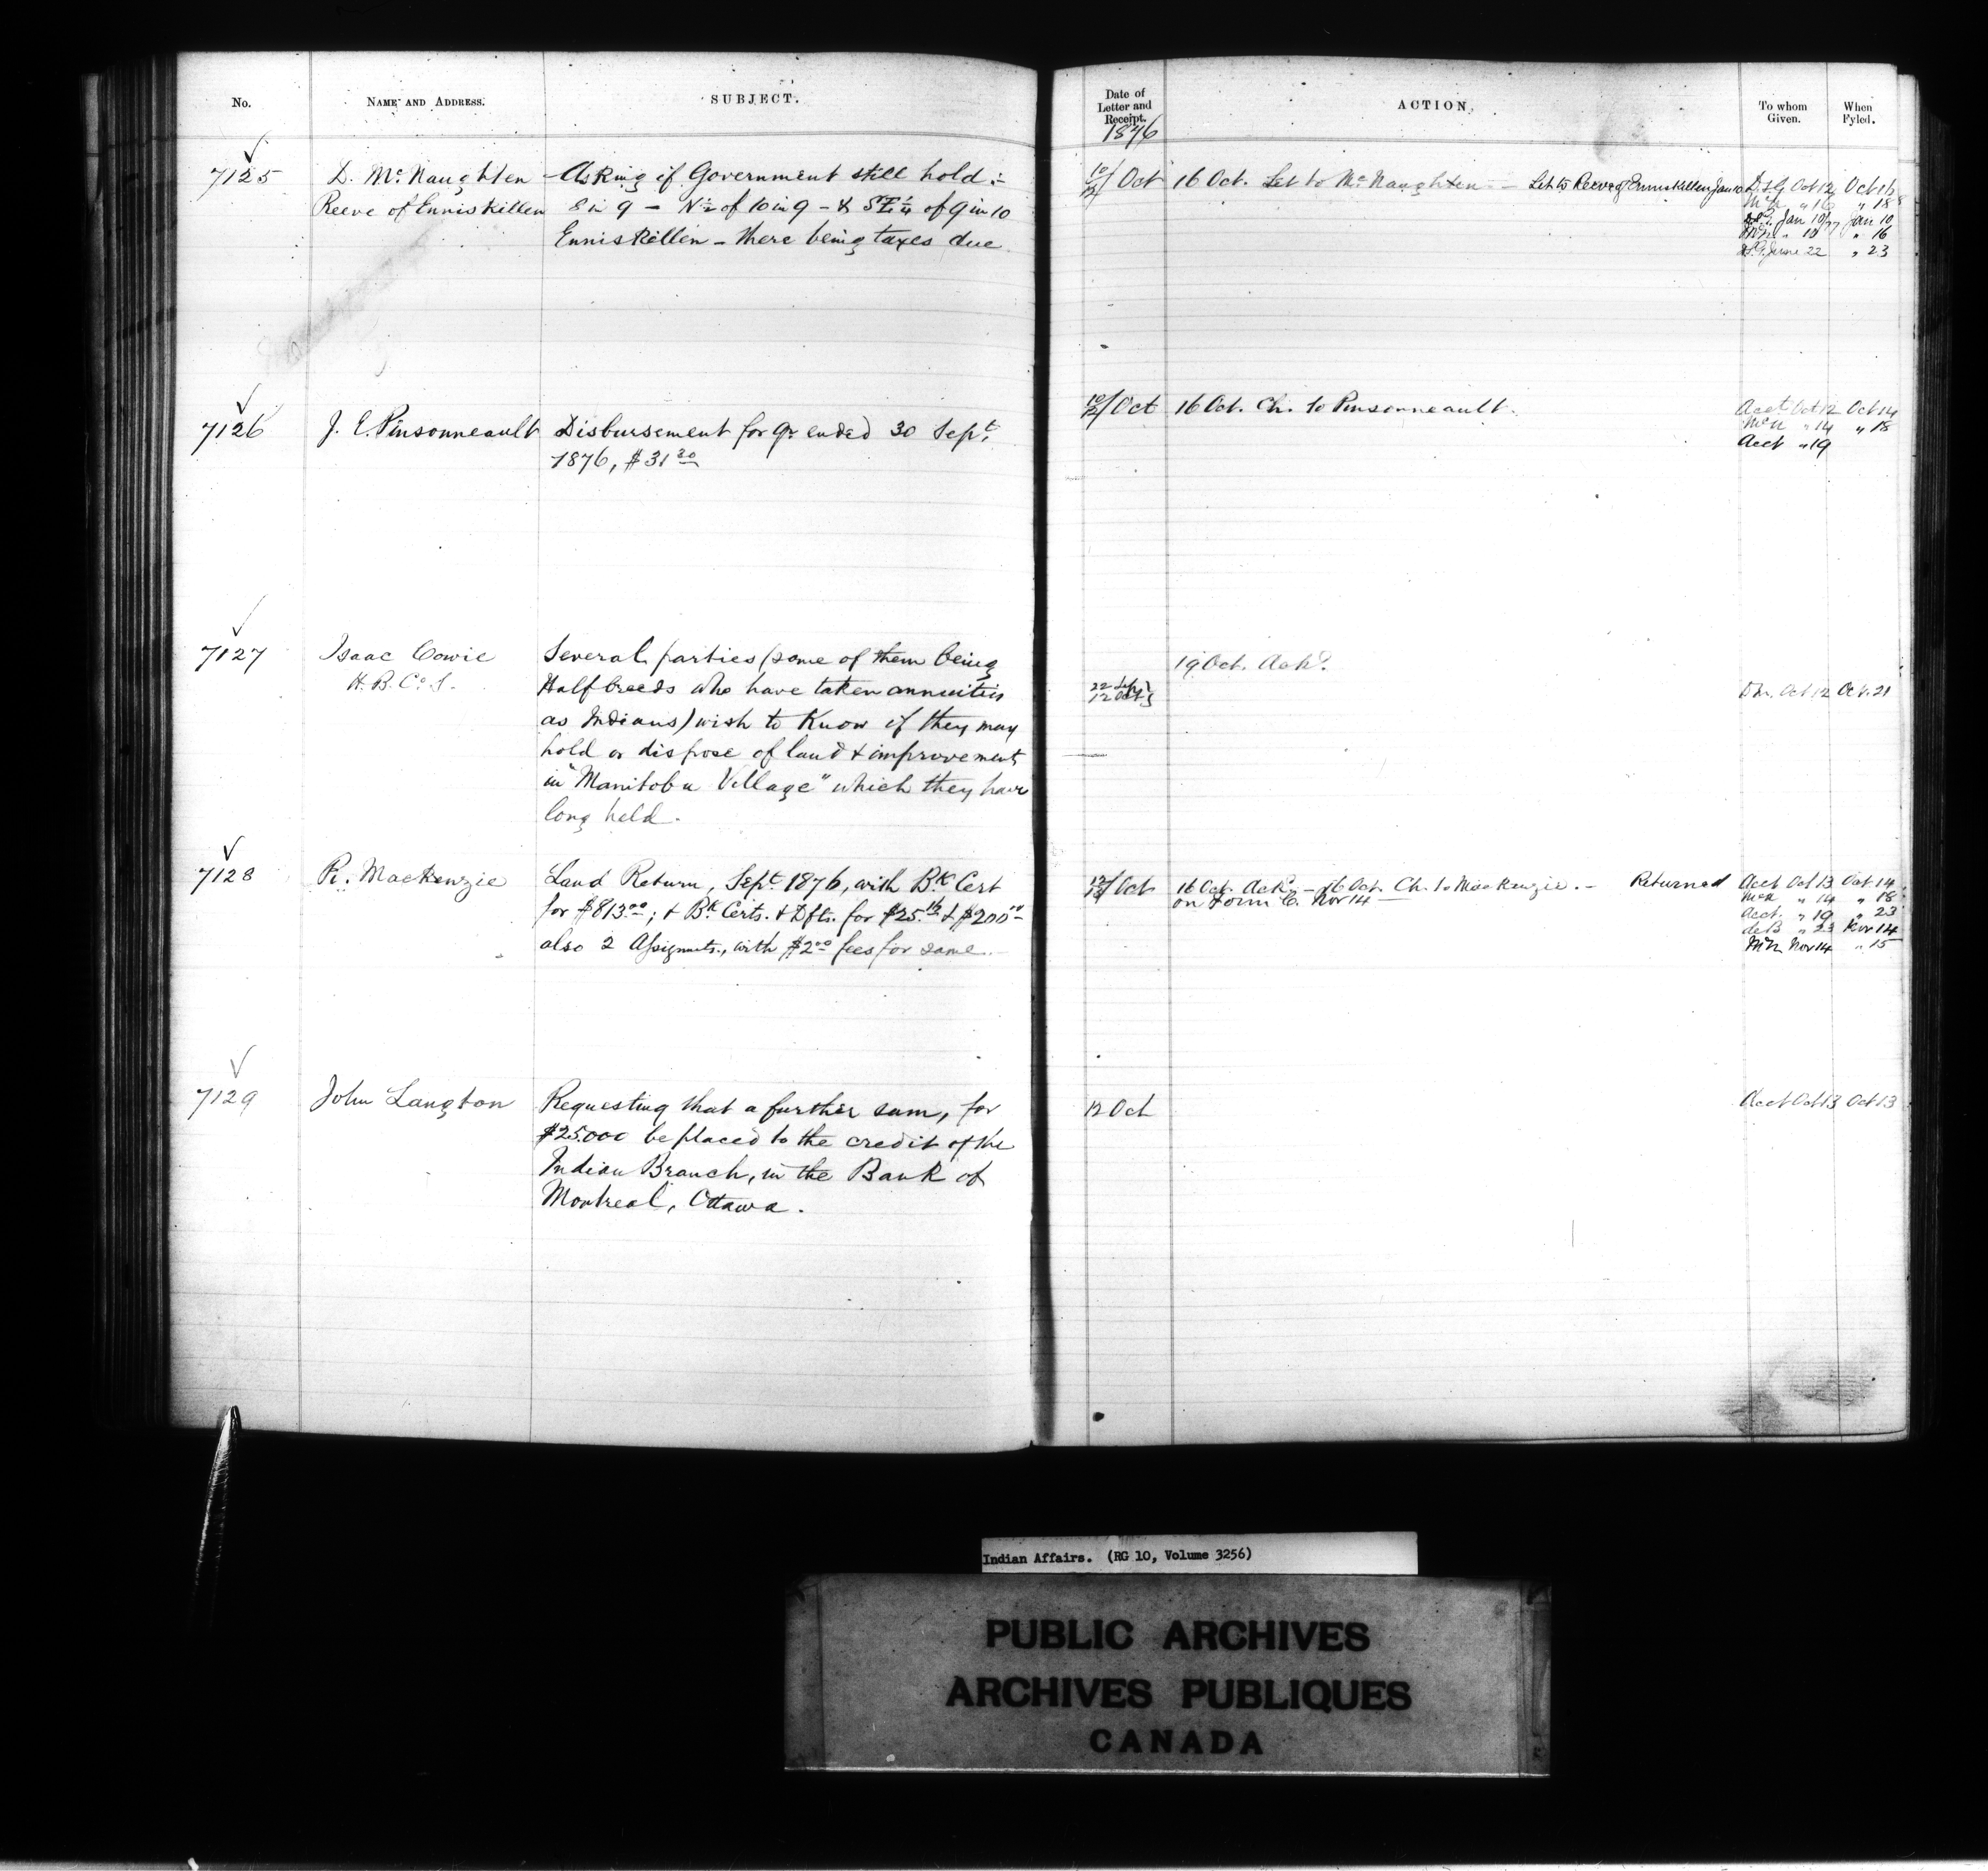 No.
NAME AND ADDRESS.
SUBJECT.
Date of Letter and Receipt.
ACTION.
To whom Given.
When Fyled.
1876
7125
D. McNaughten
Reeve of Enniskillen
Asking if Government still hold :-
8 in 9 – N ½ of 10 in 9 – & SE ¼ of 9 in 10
Enniskillen – there being taxes due
10/12 Oct
16 Oct. Let to McNaughten – Let to Reeve of Enniskillen Jan 10
Oct 12 Oct 16
" 16 " 18
Jan 10/77 Jan 10
" 10 " 16
June 22 " 23
7126
J. E. Pinsonneault
Disbursement for qr ended 30 Sept.
1876, $31 30
10/12 Oct
16 Oct. Ch. to Pinsonneault.
Acct Oct 12 Oct 14
McN " 14 " 18
Acct " 19
7127
Isaac Cowie
H. B. Co. S.
Several parties (some of them being
Halfbreeds who have taken annuities
as Indians) wish to know if they may
hold or dispose of land & improvements
in "Manitoba Village" which they have
long held.
22 Sept
12 Oct
19 Oct. Ackd.
Oct 12 Oct. 21
7128
R. Mackenzie
Land Return, Sept 1876, with Bk Cert
for $813.00; & Bk Certs. & Dfts. for $25.16 & $200 00
also 2 Assignmts., with $2 00 fees for same.
Oct
16 Oct. Ackd. – 16 Oct. Ch. to MacKenzie. – Returned
on Form C. Nov 14
Acct Oct 13 Oct. 14
McN " 14 " 18
Acct. " 19 " 23
deB " 23 Nov 14
McN Nov 14 " 15
7129
John Langton
Requesting that a further sum, for
$25.000 be placed to the credit of the
Indian Branch, in the Bank of
Montreal, Ottawa.
12 Oct
Acct Oct 13 Oct 13
Indian Affairs. (RG 10, Volume 3256)
PUBLIC ARCHIVES
ARCHIVES PUBLIQUES
CANADA